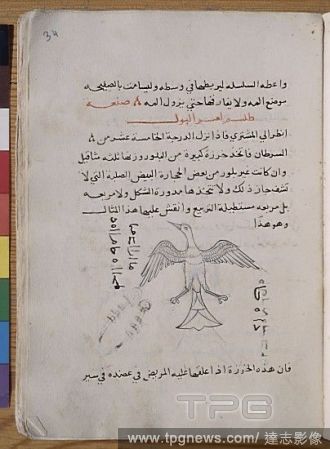 34
واعطه السلسله ليربطها في وسطه وليسامت بالصفيحه
موضع العله ولا يفارقها حتي يزول العله A صنعة
طلسم لعسر البول
انظر الي المشتري فاذا نزل الدرجة الخامسة عشر من
السرطان فاتخذ خرزة كبيرة من البلور وزنها ثلثه مثاقيل
وان كانت غير بلور من بعض الحجارة البيض الصلبة التي لا
تشف جاز ذلك ولا تتخذها مدورة الشكل ولا مربعه
بل مربعه مستطيلة التربيع وانقش عليها هذا المثال
وهو هذا
فان هذه الخرزة اذا علقها عليه المريض في عضده في سير
TPG
www.tpgnews.com/達志影像